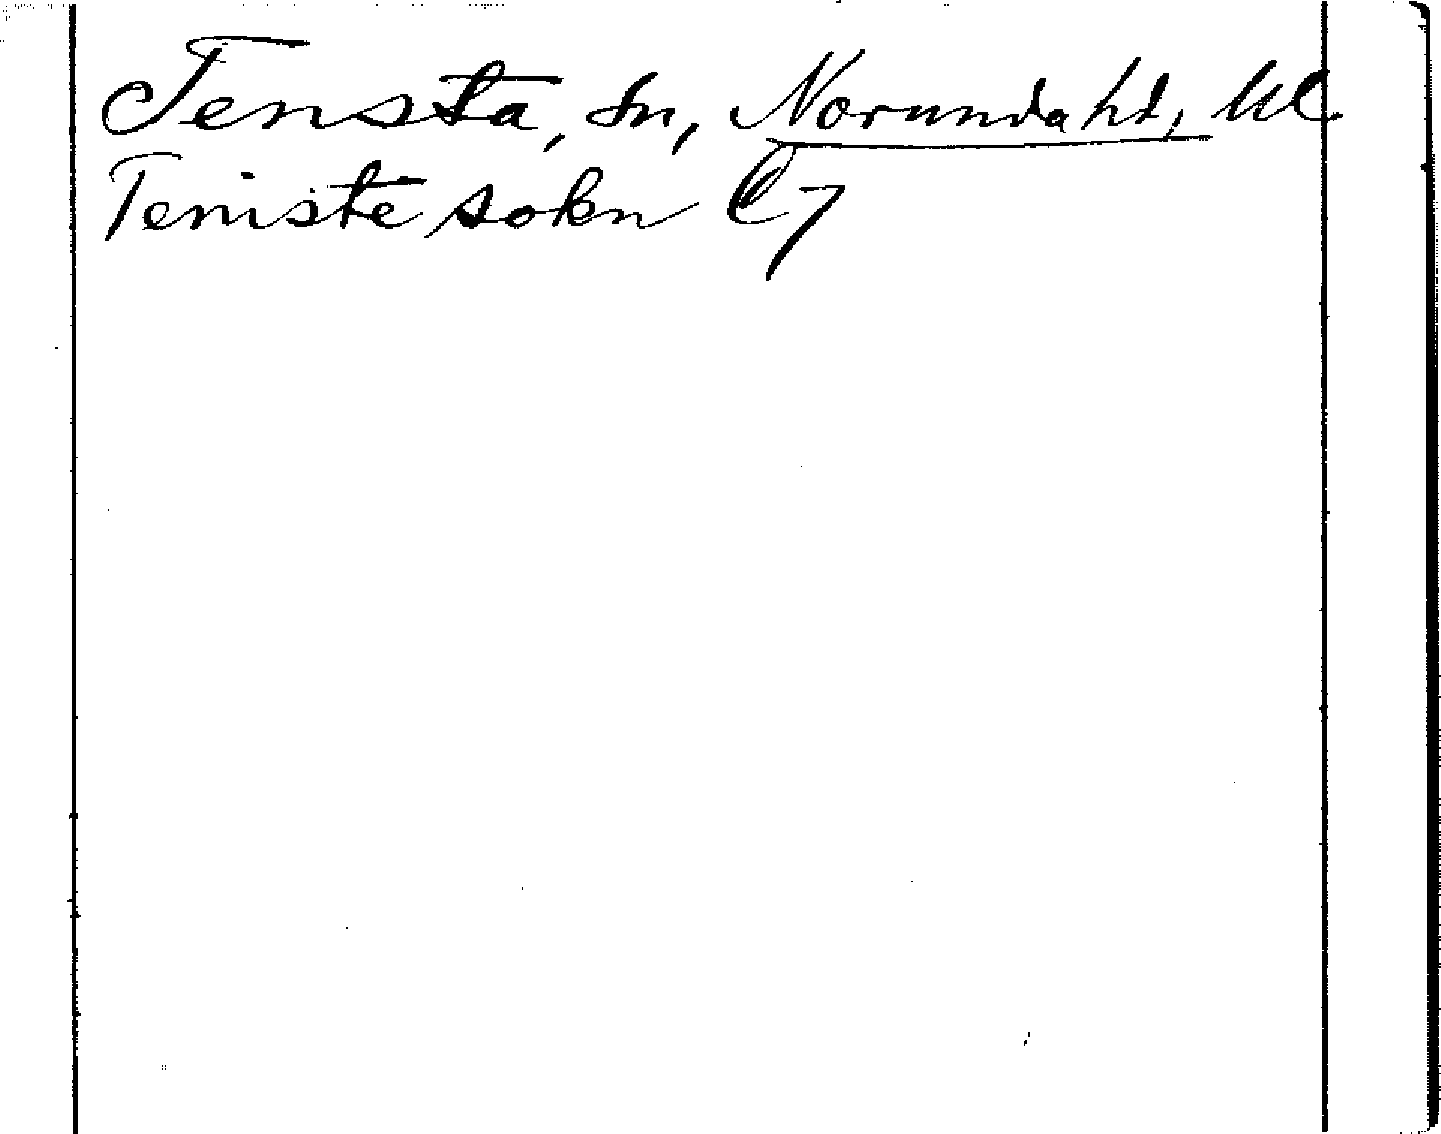 Tensta, sn, Norunda hd, Ul
Teniste sokn C 7